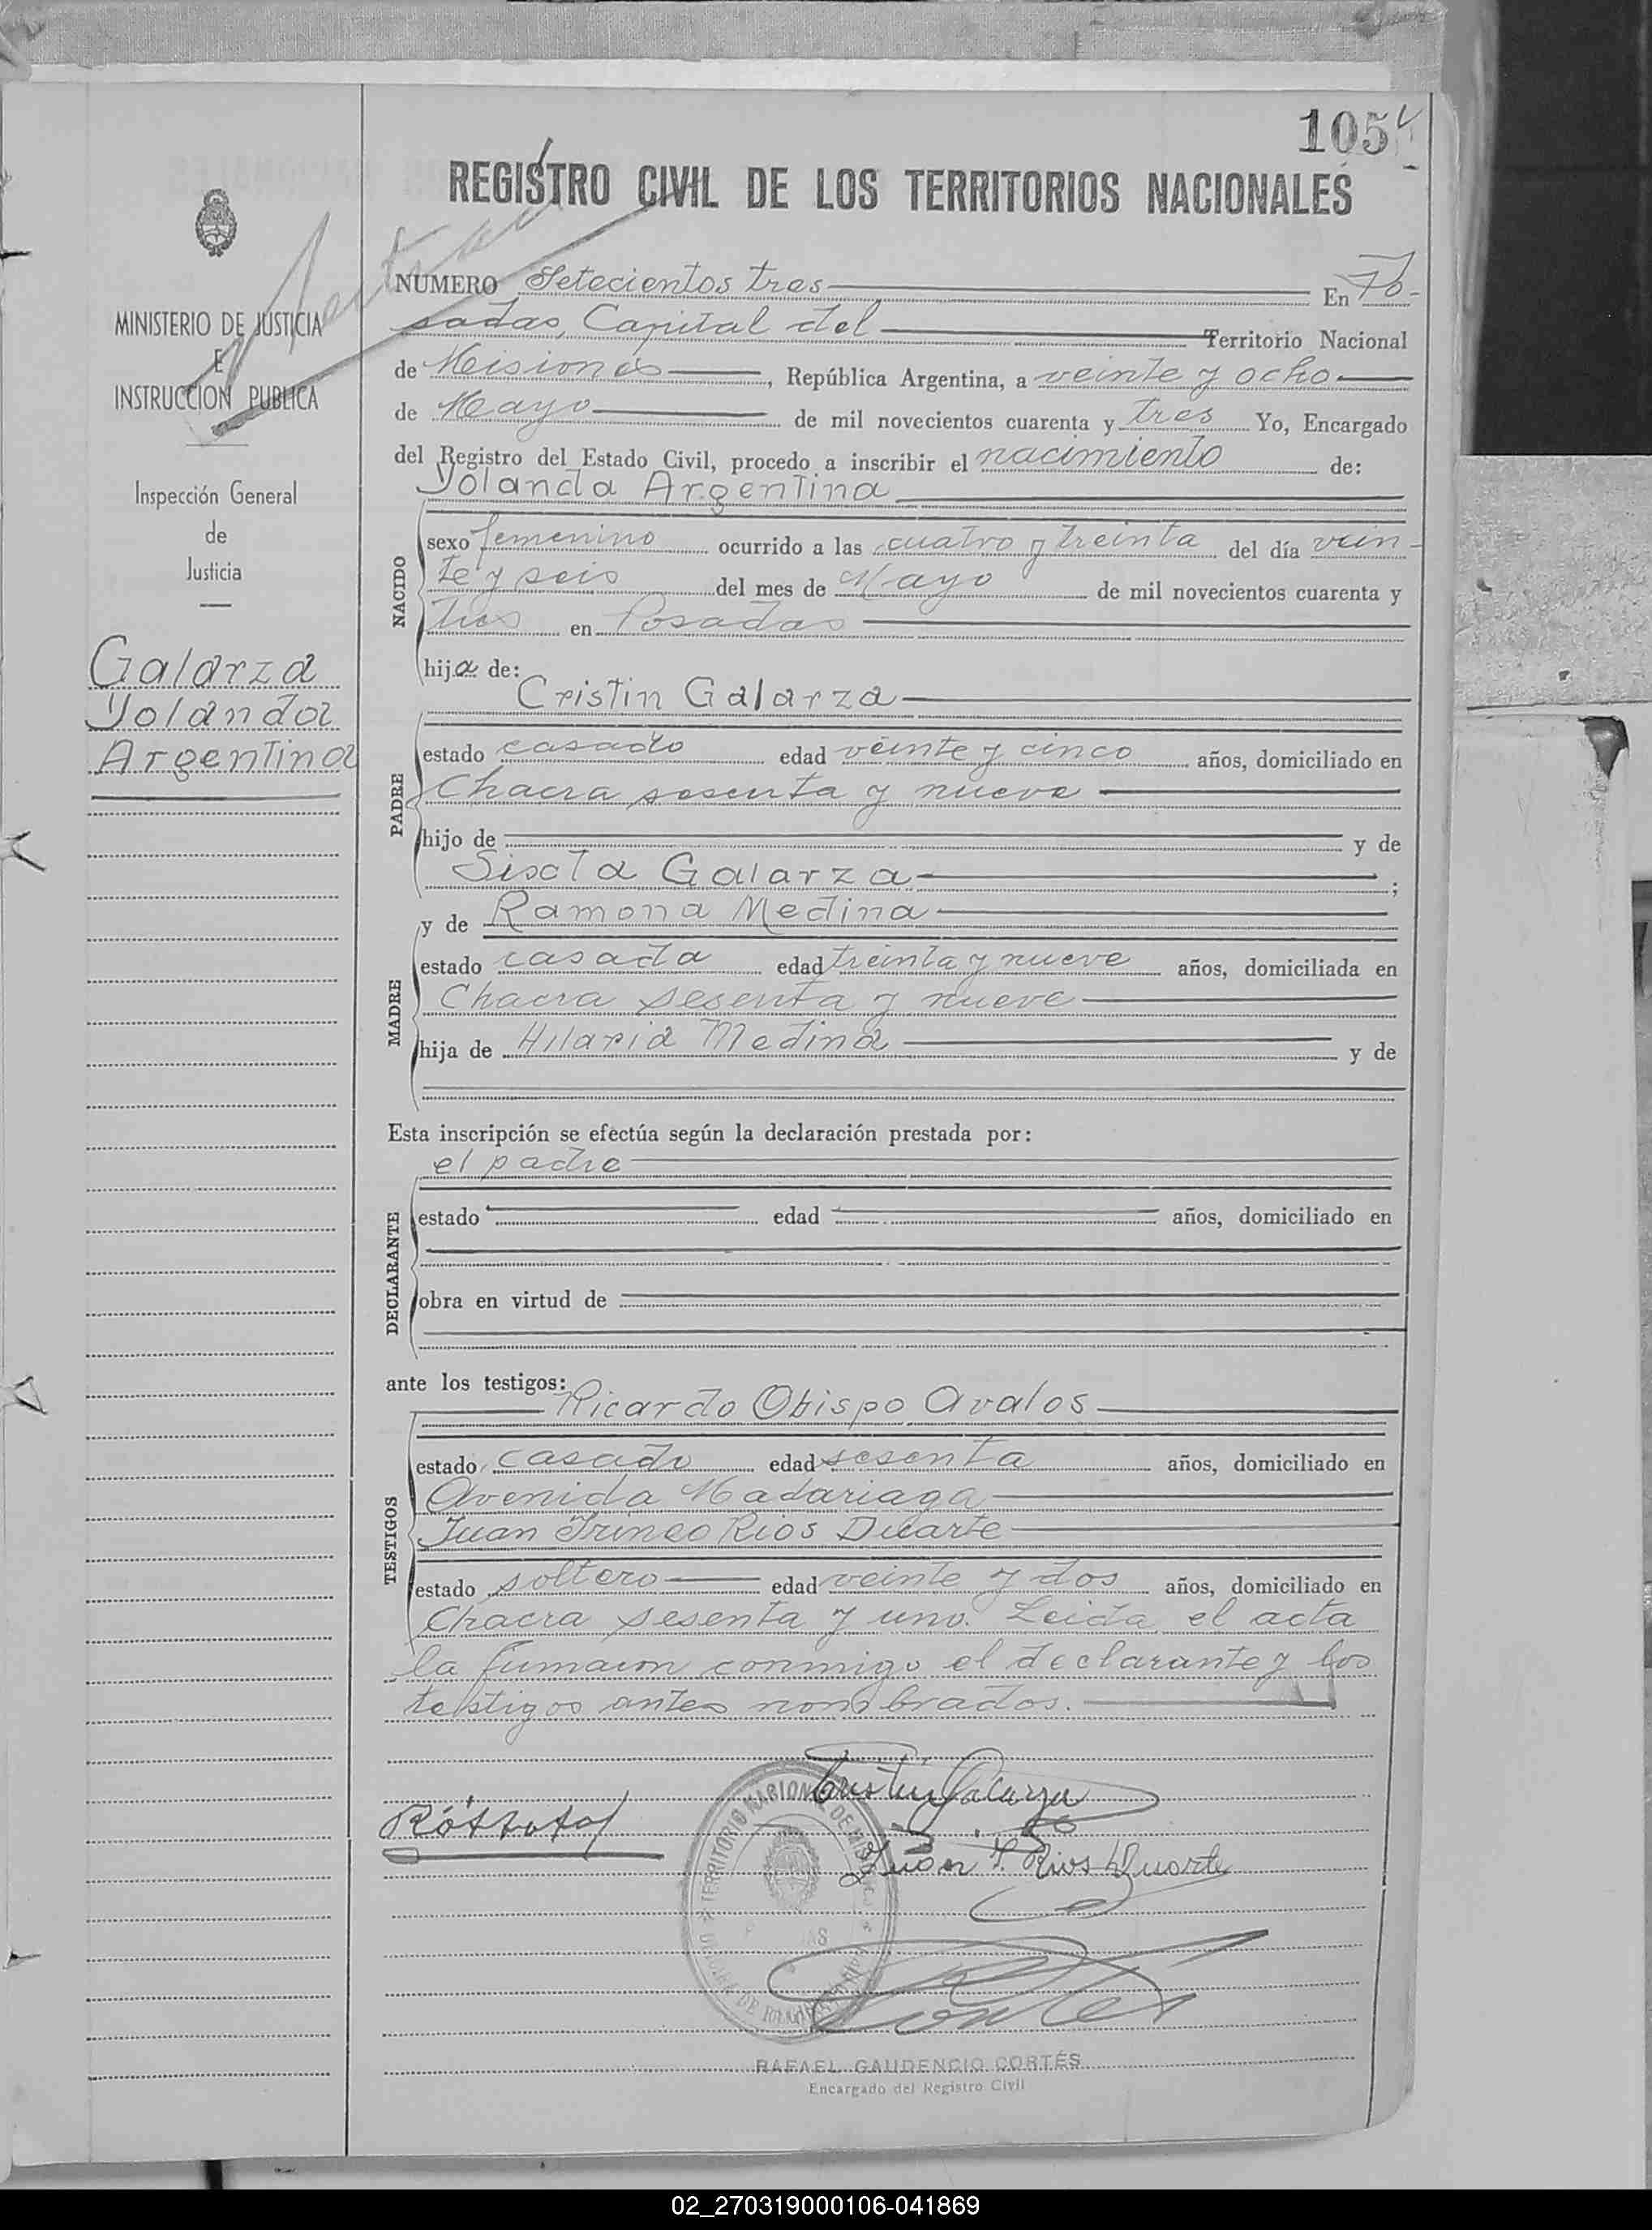 105
REGISTRO CIVIL DE LOS TERRITORIOS NACIONALES
MINISTERIO DE JUSTICIA
E
INSTRUCCION PUBLICA
Inspección General
de
Justicia
Galarza
Yolanda
Argentina
NUMERO Setecientos tres En Po-
sadas, Capital del Territorio Nacional
de Misiones, República Argentina, a veinte y ocho
de Mayo de mil novecientos cuarenta y tres Yo, Encargado
del Registro del Estado Civil, procedo a inscribir el nacimiento de:
Yolanda Argentina
NACIDO
sexo femenino ocurrido a las cuatro y treinta del día vein-
te y seis del mes de Mayo de mil novecientos cuarenta y
tres en Posadas
hija de:
Cristin Galarza
PADRE
estado casado edad veinte y cinco años, domiciliado en
Chacra sesenta y nueve
hijo de y de
Sixta Galarza ;
y de Ramona Medina
MADRE
estado casada edad treinta y nueve años, domiciliada en
Chacra sesenta y nueve
hija de Hilaria Medina y de
Esta inscripción se efectúa según la declaración prestada por:
el padre
DECLARANTE
estado edad años, domiciliado en
obra en virtud de
ante los testigos:
Ricardo Obispo Avalos
TESTIGOS
estado casado edad sesenta años, domiciliado en
Avenida Madariaga
Juan Irineo Rios Duarte
estado soltero edad veinte y dos años, domiciliado en
Chacra sesenta y uno. Leida el acta
la firmaron conmigo el declarante y los
testigos antes nombrados.
Cristin Galarza
Juan I. Rios Duarte
TERRITORIO NACIONAL DE MISIONES
Cortés
RAFAEL GAUDENCIO CORTÉS
Encargado del Registro Civil
02_270319000106-041869